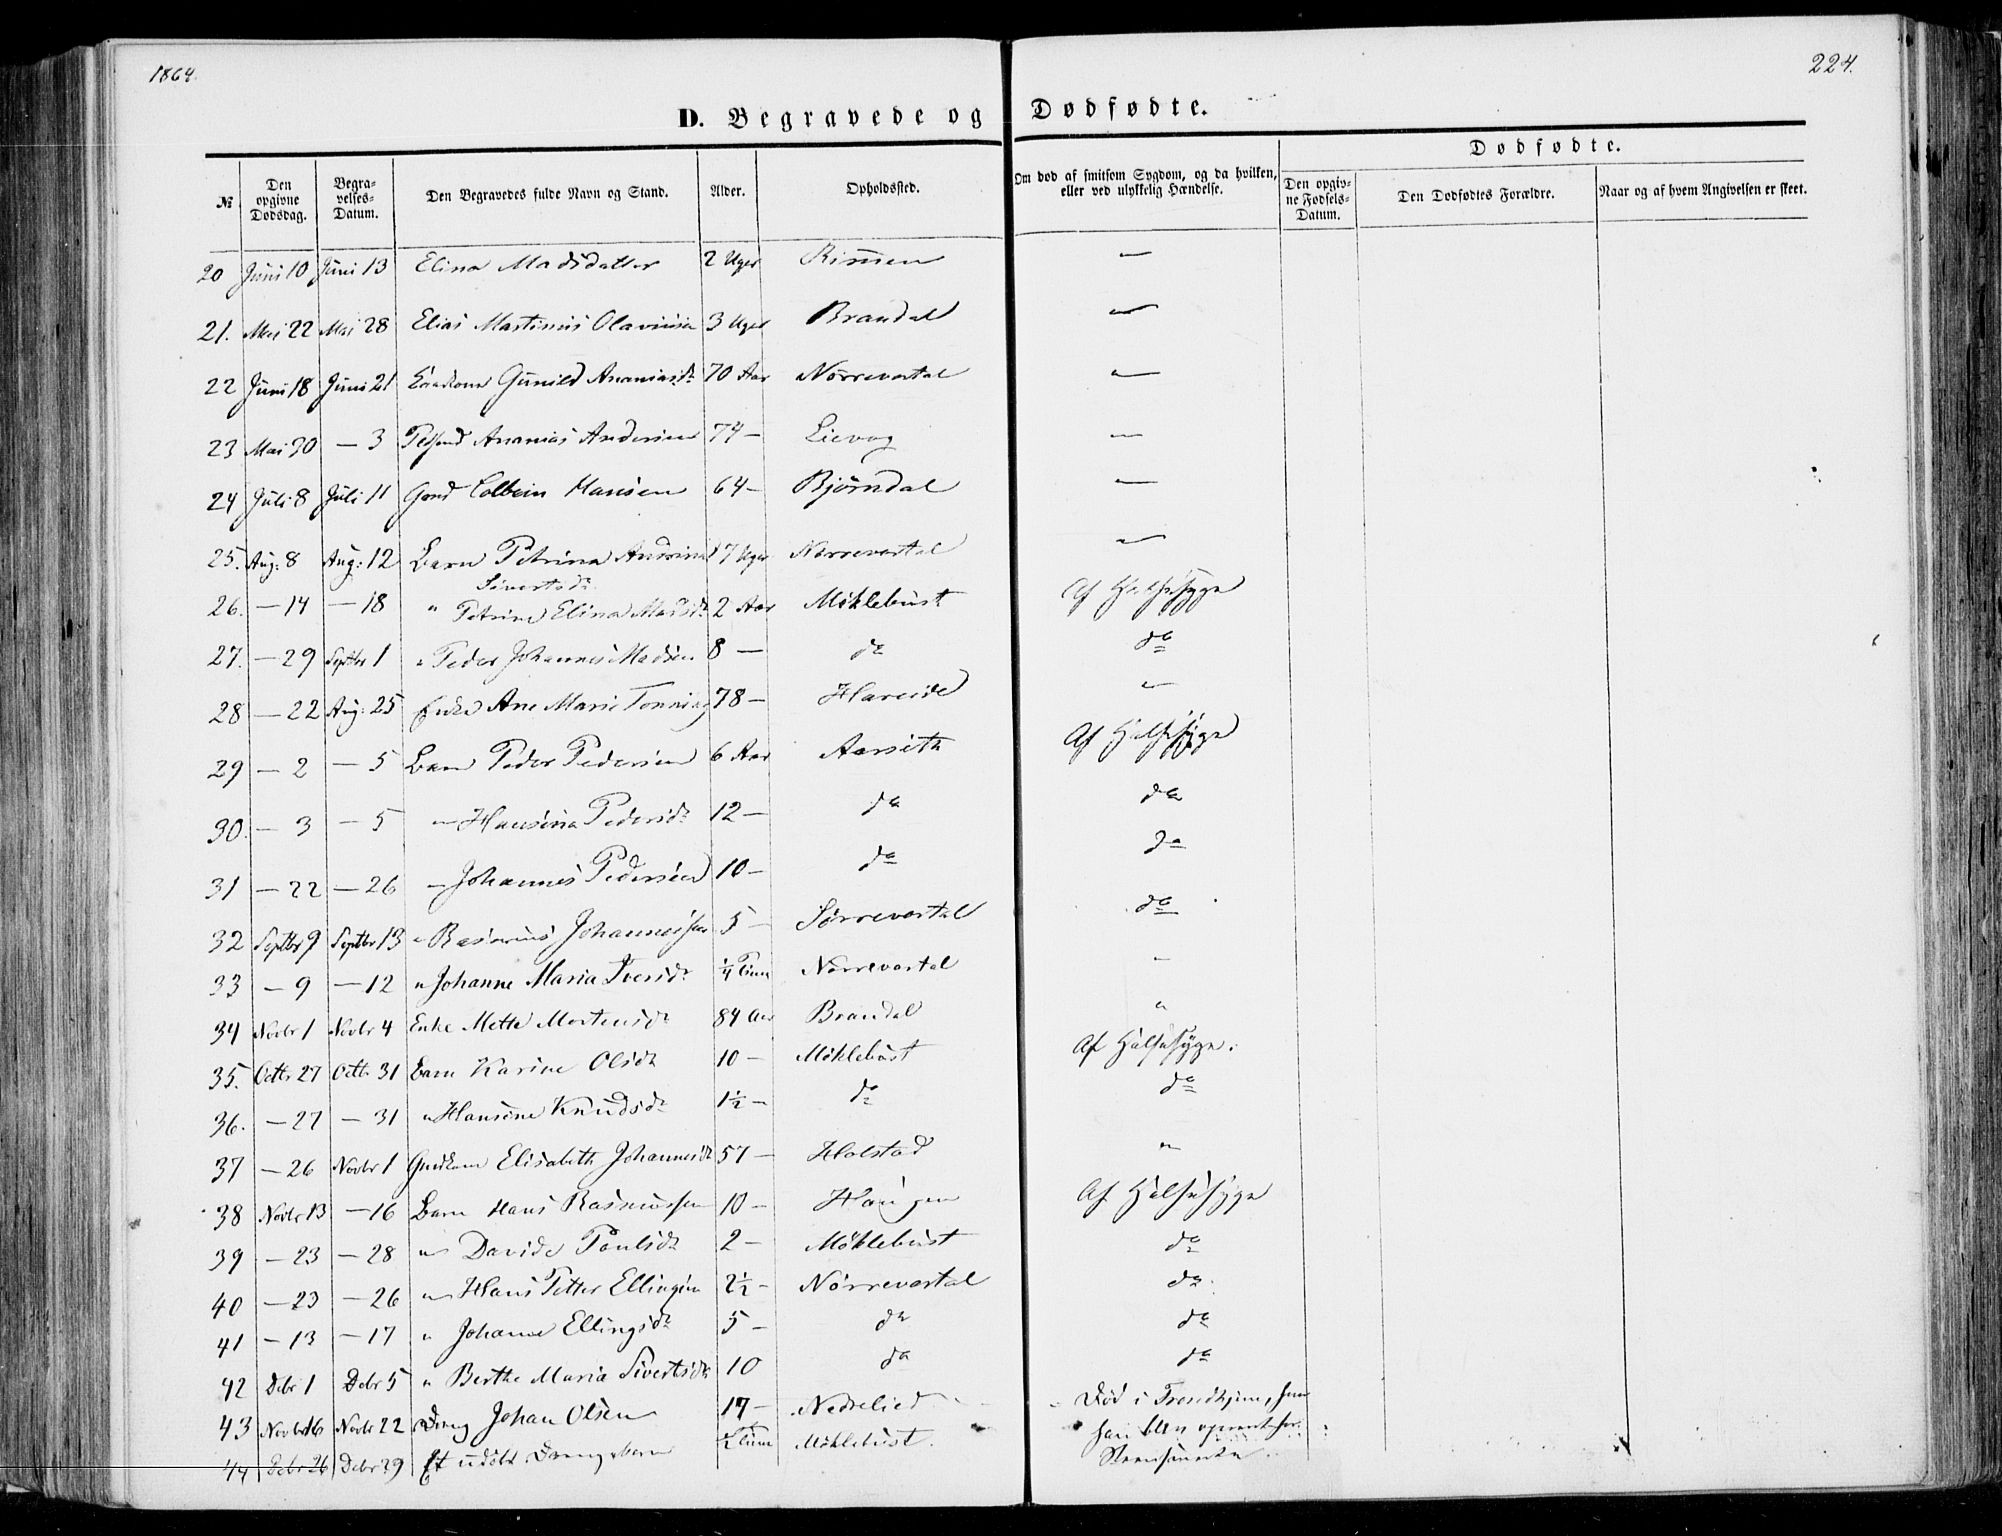 1864.
224.
D. Begravede og Dødfødte.
№
Den opgivne Dødsdag.
Begravelses-Datum.
Den Begravedes fulde Navn og Stand.
Alder.
Opholdssted.
Om død af smitsom Sygdom, og da hvilken, eller ved ulykkelig Hændelse.
Dødfødte.
Den opgivne Fødsels-Datum.
Den Dødfødtes Forældre.
Naar og af hvem Angivelsen er skeet.
20 Juni 10 Juni 13 Elina Madsdatter 2 Uger —
21. Mai 22 Mai 28 Elias Martinus 3 Uger Brandal —
22 Juni 18 Juni 21 Gunild Ananiasdr 70 Aar Nørrevartal —
23 Mai 30 — 3 Ananias Andersen 74 — Lievog —
24 Juli 8 Juli 11 Gmd Colbein Hansen 64 — Bjørndal —
25. Aug: 8 Aug: 12 Barn Petrina Andrina 17 Uger Nørrevartal —
Sivertsdr
26. — 14 — 18 " Petrine Elina Madsdr 2 Aar Möklebust Af Halsesyge
27. — 29 Septbr 1 " Peder Johannes Madsen 8 — do do
28 — 22 Aug: 25 Enke Ane Marie Tonning 78 — Hareide —
29 — 2 — 5 Barn Peder Pedersen 6 Aar Aarseth Af Halsesyge
30. — 3 — 5 — Hansina Pedersdr 12 — do do
31 — 22 — 26 — Johannes Pedersen 10 — do do
32 Septbr 9 Septbr 13 " Rasmus Johannessen 5 — Sørrevartal do
33 — 9 — 12 " Johanne Maria Iversdr 1/4 Time Nørrevartal "
34 Novbr 1 Novbr 4 Enke Mette Mortensdr 84 Aar Brandal "
35. Octbr 27 Octbr 31 Barn Karine Olsdr 10 — Möklebust Af Halsesyge.
36. — 27 — 31 " Hansine Knudsdr 1½ — do do
37 — 26 Novbr 1 Elisabeth Johannesdr 57 — Holstad "
38 Novbr 13 — 16 Barn Hans Rasmussen 10 — Haugen Af Halsesyge
39 — 23 — 28 " Davide Poulsdr 2 — Möklebust do
40 — 23 — 26 " Hans Petter Ellingsen 2½ — Nørrevartal do
41 — 13 — 17 " Johanne Ellingsdr 5 — do do
42 Debr 1 Debr 5 " Berthe Maria Sivertsdr 10 do do
43 Novbr 16 Novbr 22 Dreng Johan Olsen 17 — Nedrelied Død i Trondhjem, hvor
han blev
44 Debr 26 Debr 29 Et udöbt Drengebarn ½ Time Möklebust.